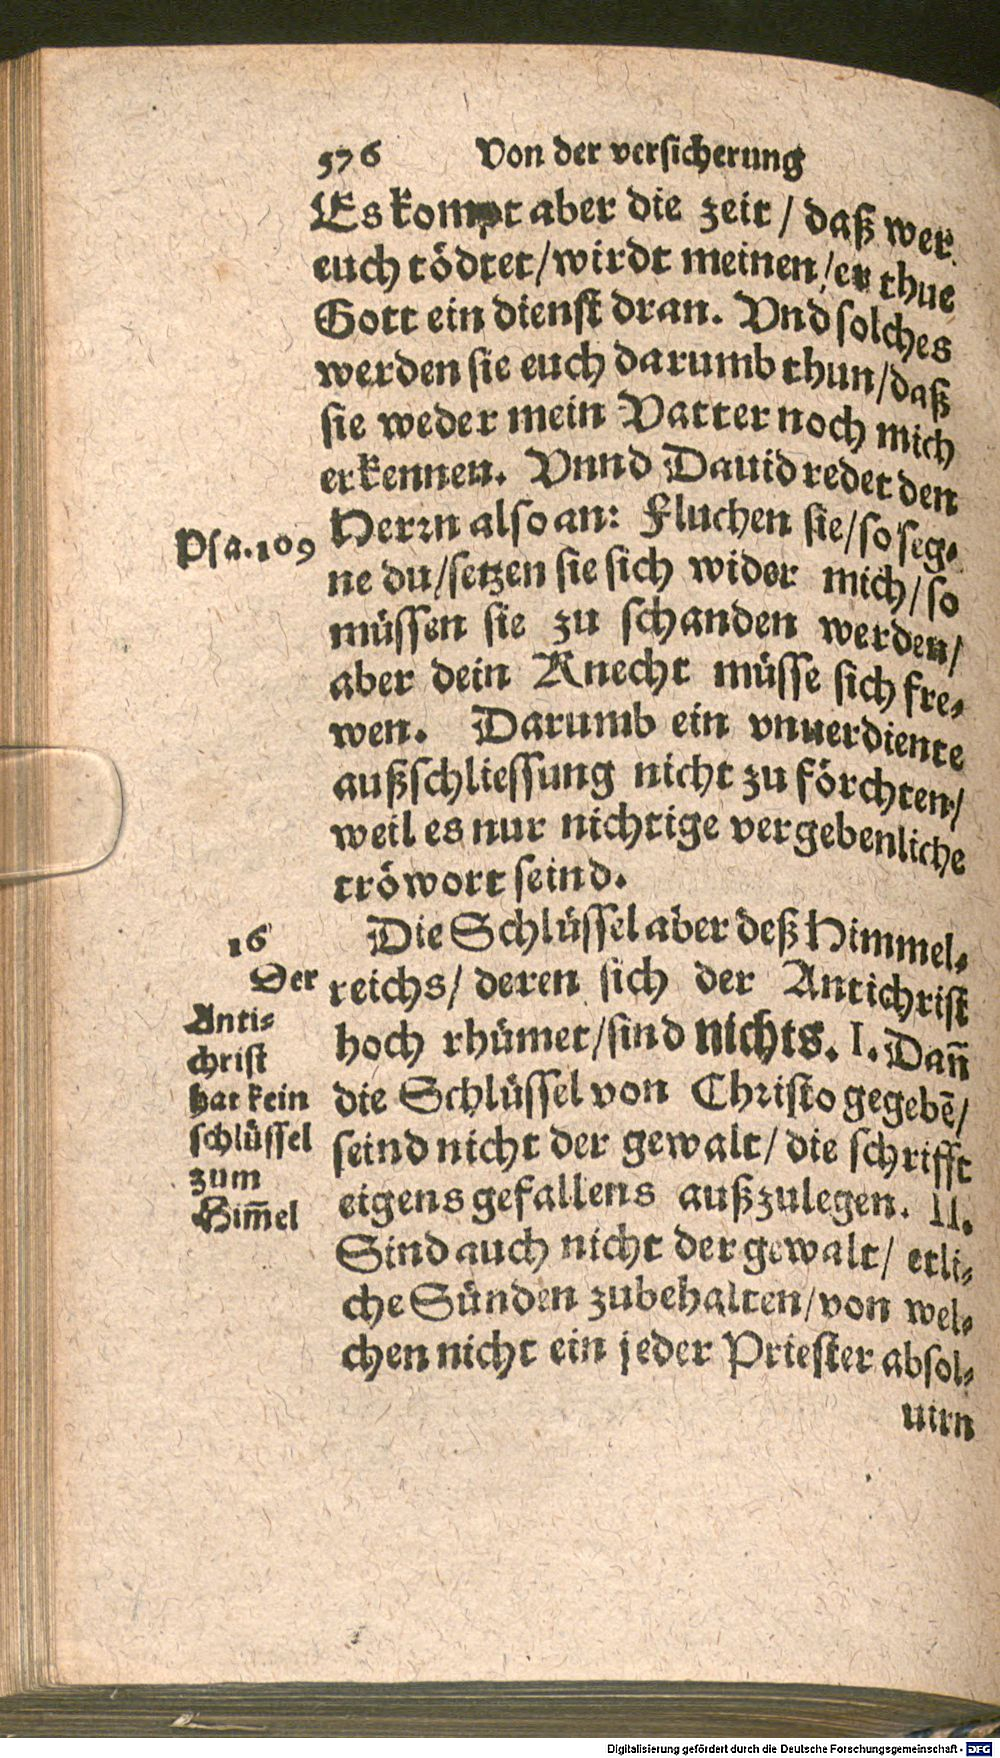 576 Von der versicherung
Es kompt aber die zeit / daß wer
euch tödtet / wirdt meinen / er thue
Gott ein dienst dran. Vnd solches
werden sie euch darumb thun / daß
sie weder mein Vatter noch mich
erkennen. Vnnd Dauid redet den
Psa. 109
Herrn also an: Fluchen sie / so seg-
ne du / setzen sie sich wider mich / so
müssen sie zu schanden werden /
aber dein Knecht müsse sich fre-
wen. Darumb ein vnuerdiente
außschliessung nicht zu förchten /
weil es nur nichtige vergebenliche
tröwort seind.
16
Der
Anti-
christ
hat kein
schlüssel
zum
Him̄el
Die Schlüssel aber deß Himmel-
reichs / deren sich der Antichrist
hoch rhümet / sind nichts. I. Dan̄
die Schlüssel von Christo gegebē /
seind nicht der gewalt / die schrifft
eigens gefallens außzulegen. II.
Sind auch nicht der gewalt / etli-
che Sünden zubehalten / von wel-
chen nicht ein jeder Priester absol-
uirn
Digitalisierung gefördert durch die Deutsche Forschungsgemeinschaft - DFG